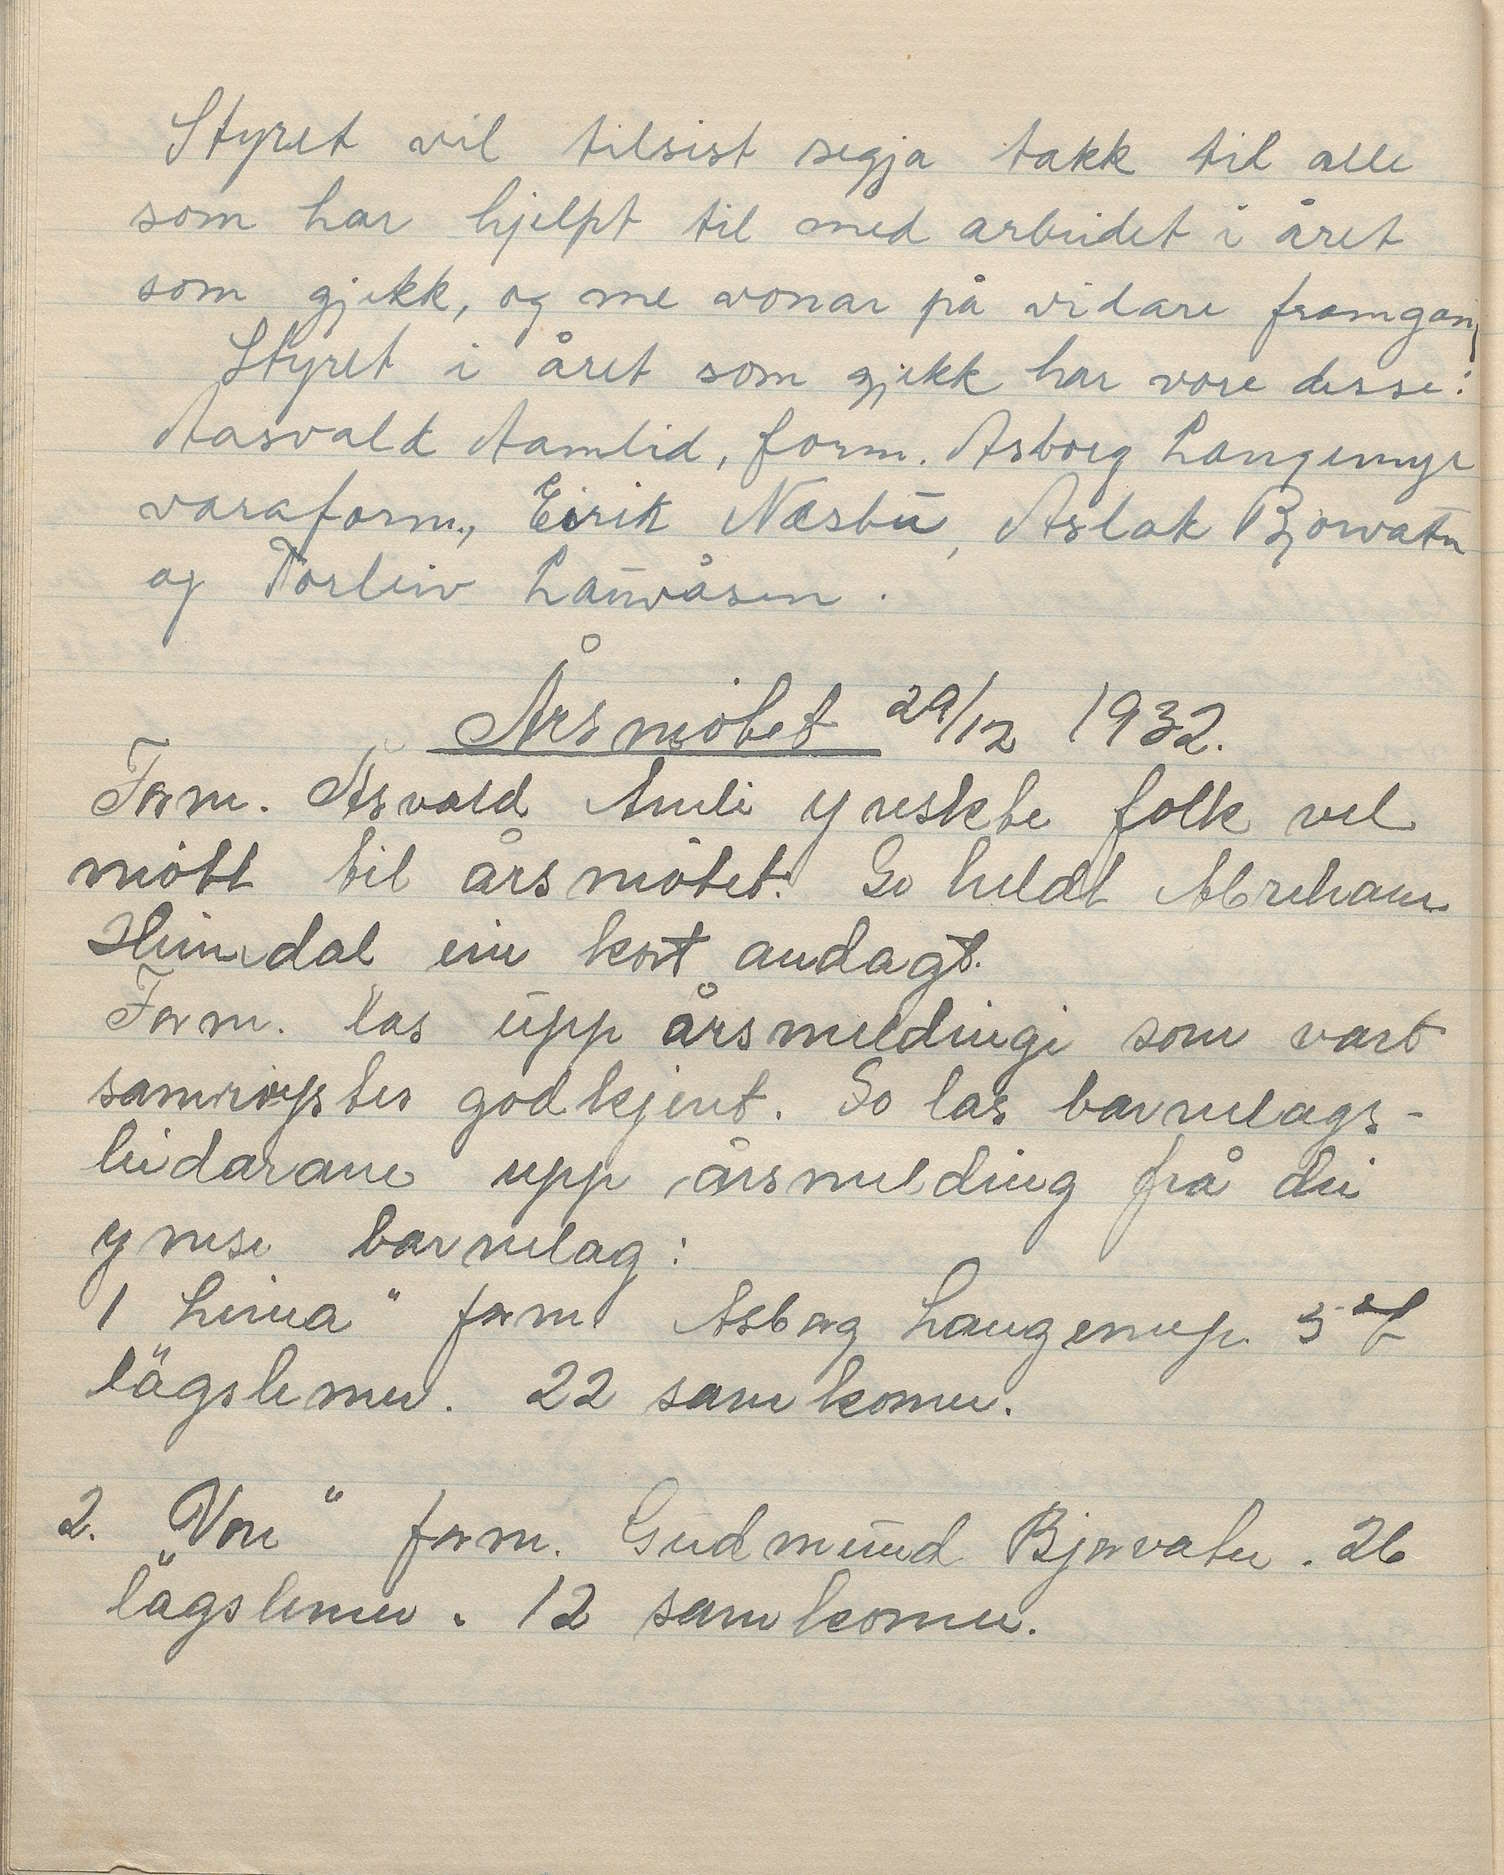 Styret vil tilsist segja takk til alle
som har hjelpt til med arbeidet i året
som gjekk, og me vonar på vidare framgang
Styret i året som gjekk har vore desse:
Aasvald Aamlid, form. Asborg Langemyr
varaform., Eirik Næsbū, Aslak Bjorvatn
og Torleiv Laūvåsen.
Årsmötet 29/12 1932.
Form. Åsvald Amli ynskte folk vel
mött til årsmötet. So heldt Abreham
Heimdal ein kort andagt.
Form. las ūpp årsmeldingi som vart
samröystes godkjent. So las barnelags-
leidarane upp årsmelding frå dei
ymse barnelag:
1 Leiva" form Asborg Langemyr. 5
lagslemer. 22 samkomer.
2. „Von" form. Gūdmūnd Bjorvatn. 26
lagslemer. 12 samkomer.